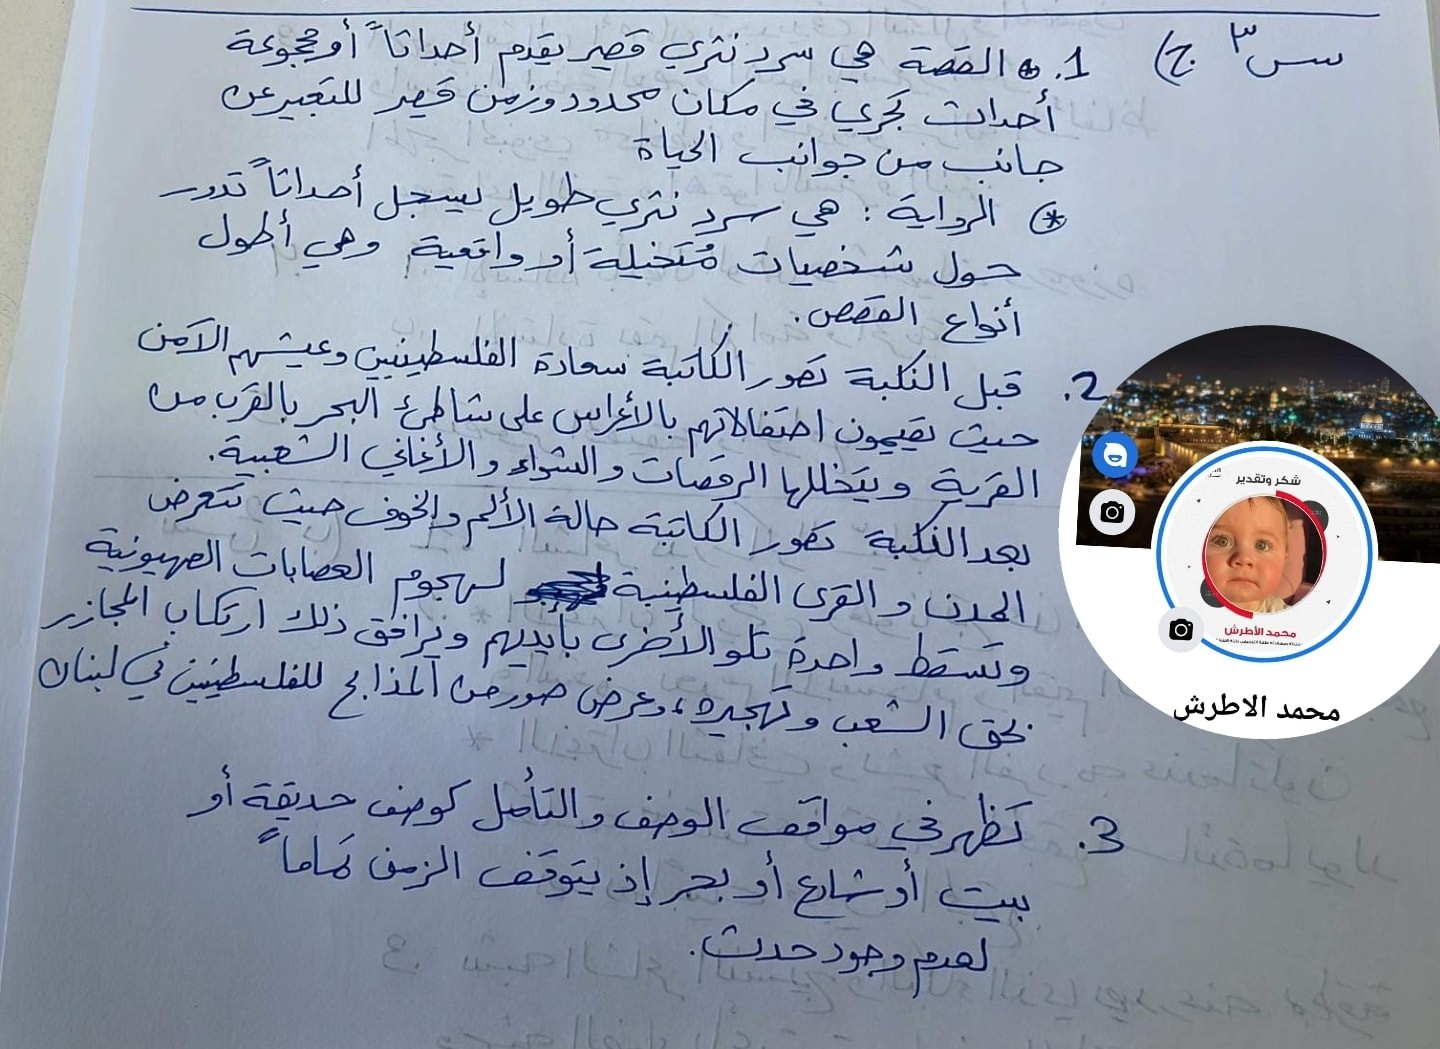 س٣ ج)
1. * القصة هي سرد نثري قصير يقدم أحداثاً أو مجموعة
أحداث تجري في مكان محدود وزمن قصير للتعبير عن
جانب من جوانب الحياة
* الرواية : هي سرد نثري طويل يسجل أحداثاً تدور
حول شخصيات مُتخيلة أو واقعية وهي أطول
أنواع القصص.
2. قبل النكبة تصور الكاتبة سعادة الفلسطينيين وعيشهم الآمن
حيث يقيمون احتفالاتهم بالأعراس على شاطئ البحر بالقرب من
القرية ويتخللها الرقصات والشواء والأغاني الشعبية.
بعد النكبة تصور الكاتبة حالة الألم والخوف حيث تتعرض
المدن والقرى الفلسطينية لهجوم العصابات الصهيونية
وتسقط واحدة تلو الأخرى بأيديهم ويرافق ذلك ارتكاب المجازر
بحق الشعب وتهجيره، وعرض صور من المذابح للفلسطينيين في لبنان
3. تظهر في مواقف الوصف والتأمل كوصف حديقة أو
بيت أو شارع أو بحر إذ يتوقف الزمن تماماً
لعدم وجود حدث.
شكر وتقدير
محمد الأطرش
محمد الاطرش